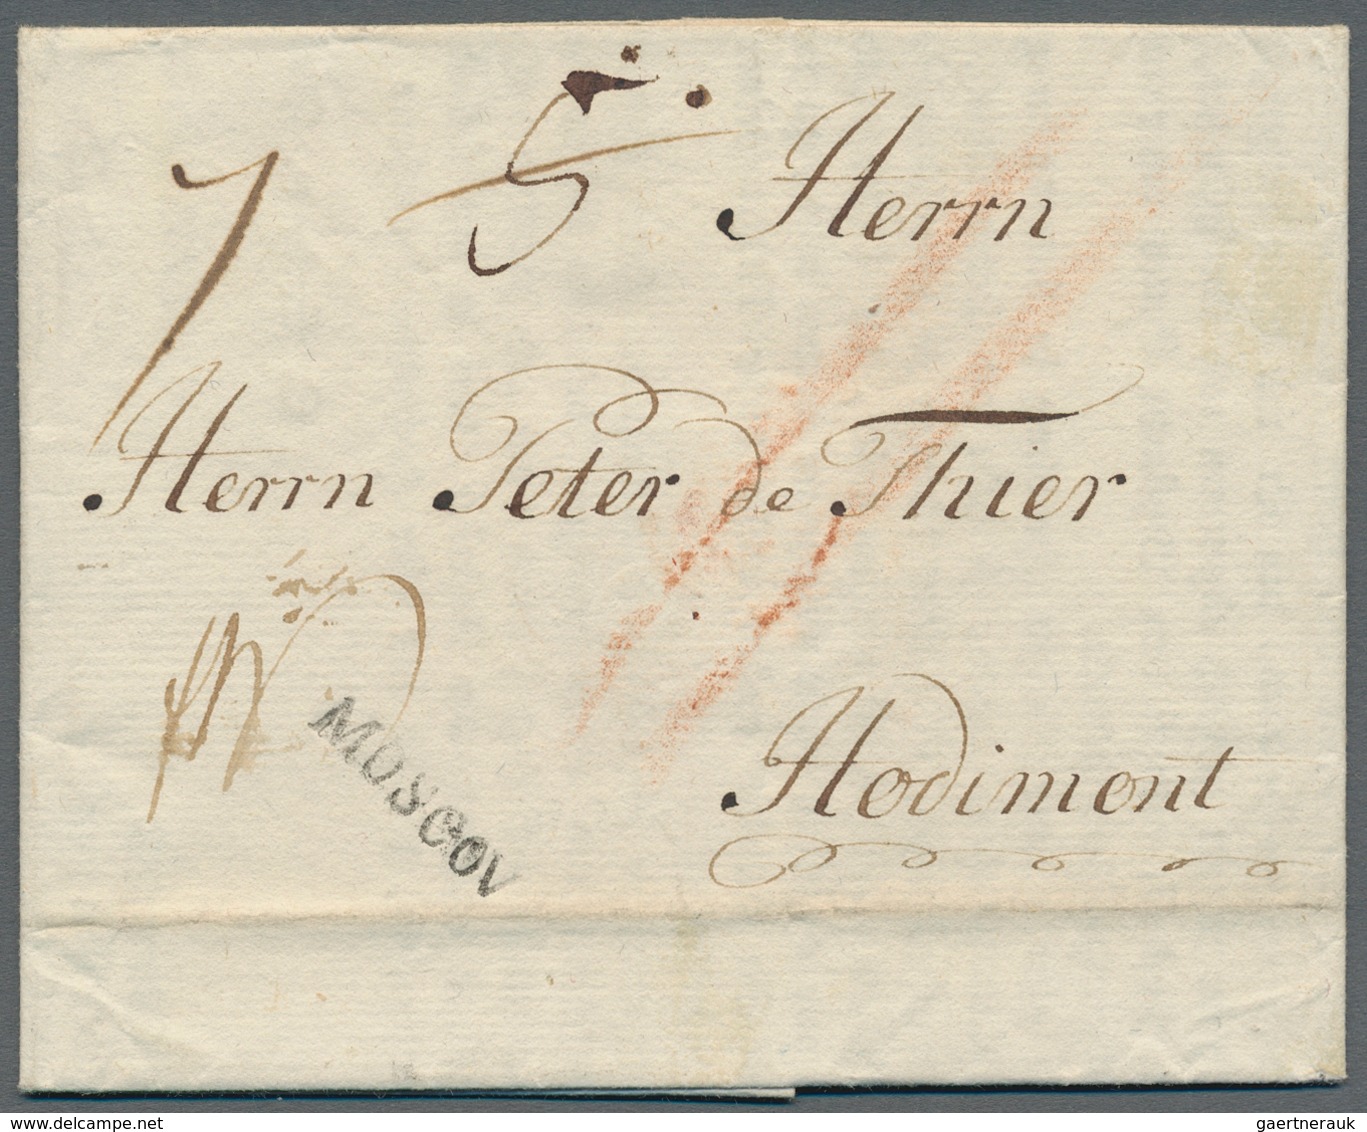 7
5
Herrn
Herrn Peter de Thier
MOSCOV
Hodimont
gaertnerauk
www.delcampe.net